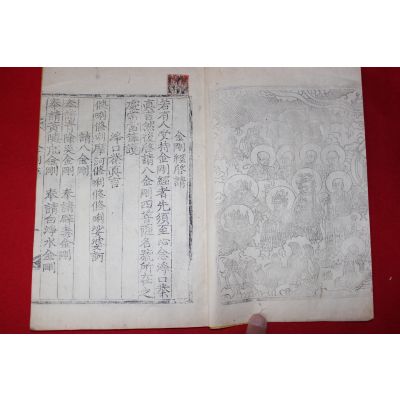 金剛經啓請
若有人受持金剛經者先須至心念淨口業
眞言然後啓請八金剛四菩薩名號所在之
處常當擁護
淨口業眞言
修唎修唎摩訶修唎修修唎娑婆訶
請八金剛
奉請靑除災金剛 奉請辟毒金剛
奉請黃隨求金剛 奉請白淨水金剛